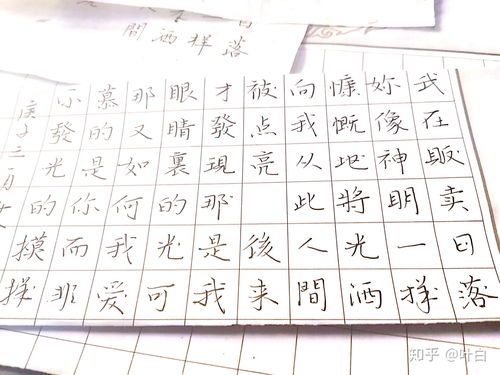 落
样
洒
間
我在販卖日落
妳像神明一样
慷慨地將光洒
向我从此人間
被点亮 後来
才發現那是我
眼睛裏的光可
那又如何我爱
慕的是你而非
不發光的摸样
庚子三月
知乎 @叶白